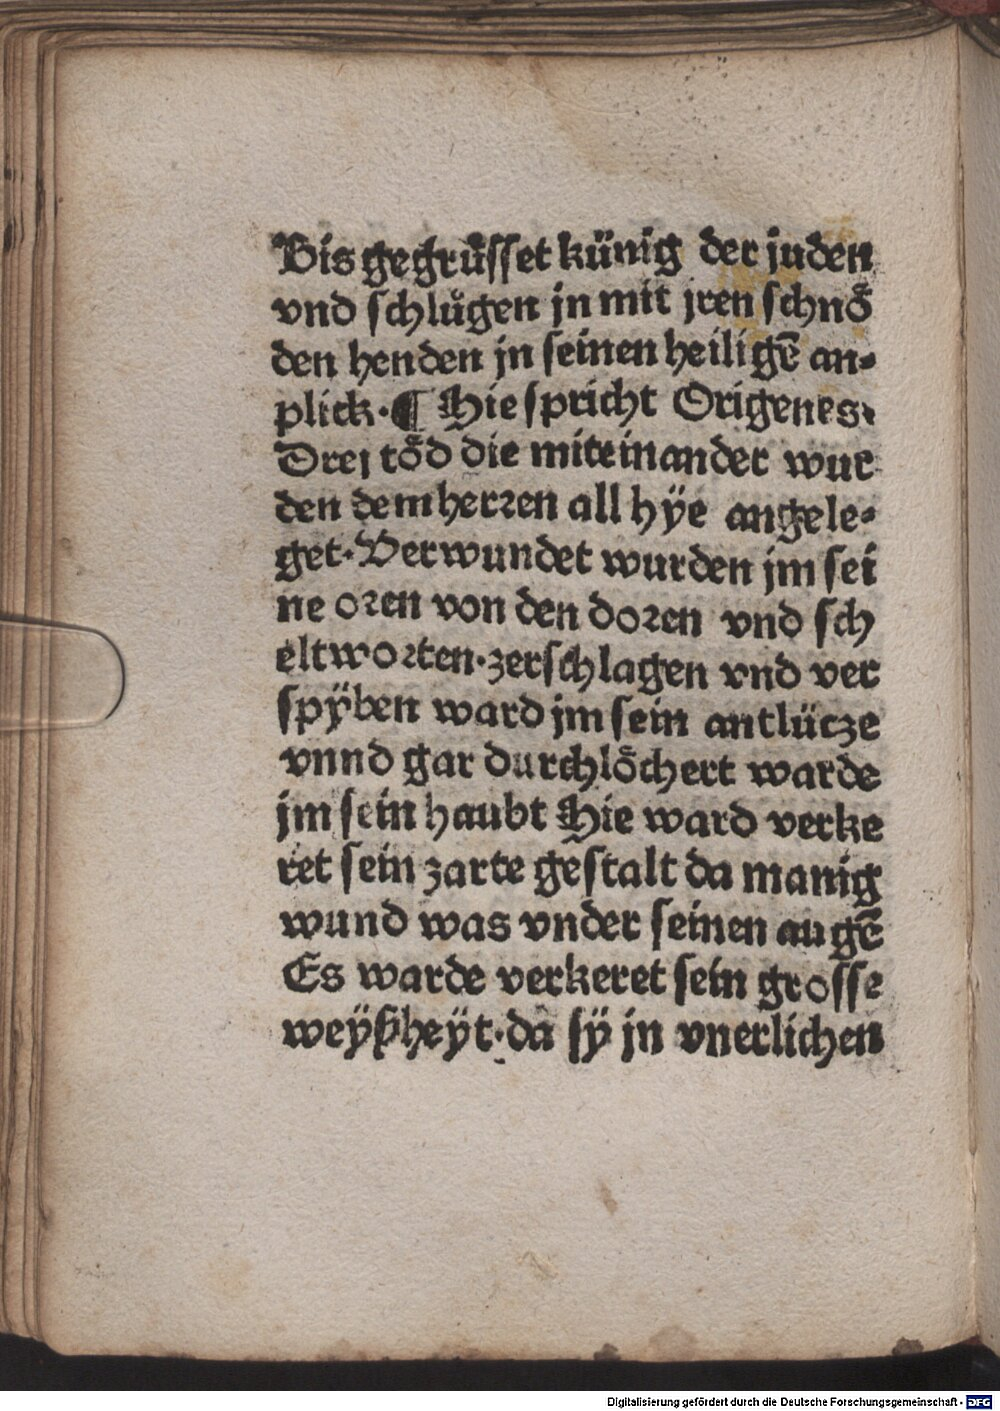 Bis gegrüsset künig der juden
vnd schlůgen jn mit jren schnö
den henden jn seinen heiligē an⸗
plick · ¶ Hie spricht Origenes.
Drej töd die miteinander wur
den dem herꝛen all hÿe angele⸗
get · Verwundet wurden jm sei
ne oꝛen von den doꝛen vnd sch
eltwoꝛten · zerschlagen vnd ver
spÿben ward jm sein antlücze
vnnd gar durchlöchert warde
jm sein haubt Hie ward verke
ret sein zarte gestalt da manig
wund was vnder seinen augē
Es warde verkeret sein grosse
weÿßheÿt · da sÿ jn vnerlichen
Digitalisierung gefördert durch die Deutsche Forschungsgemeinschaft - DFG